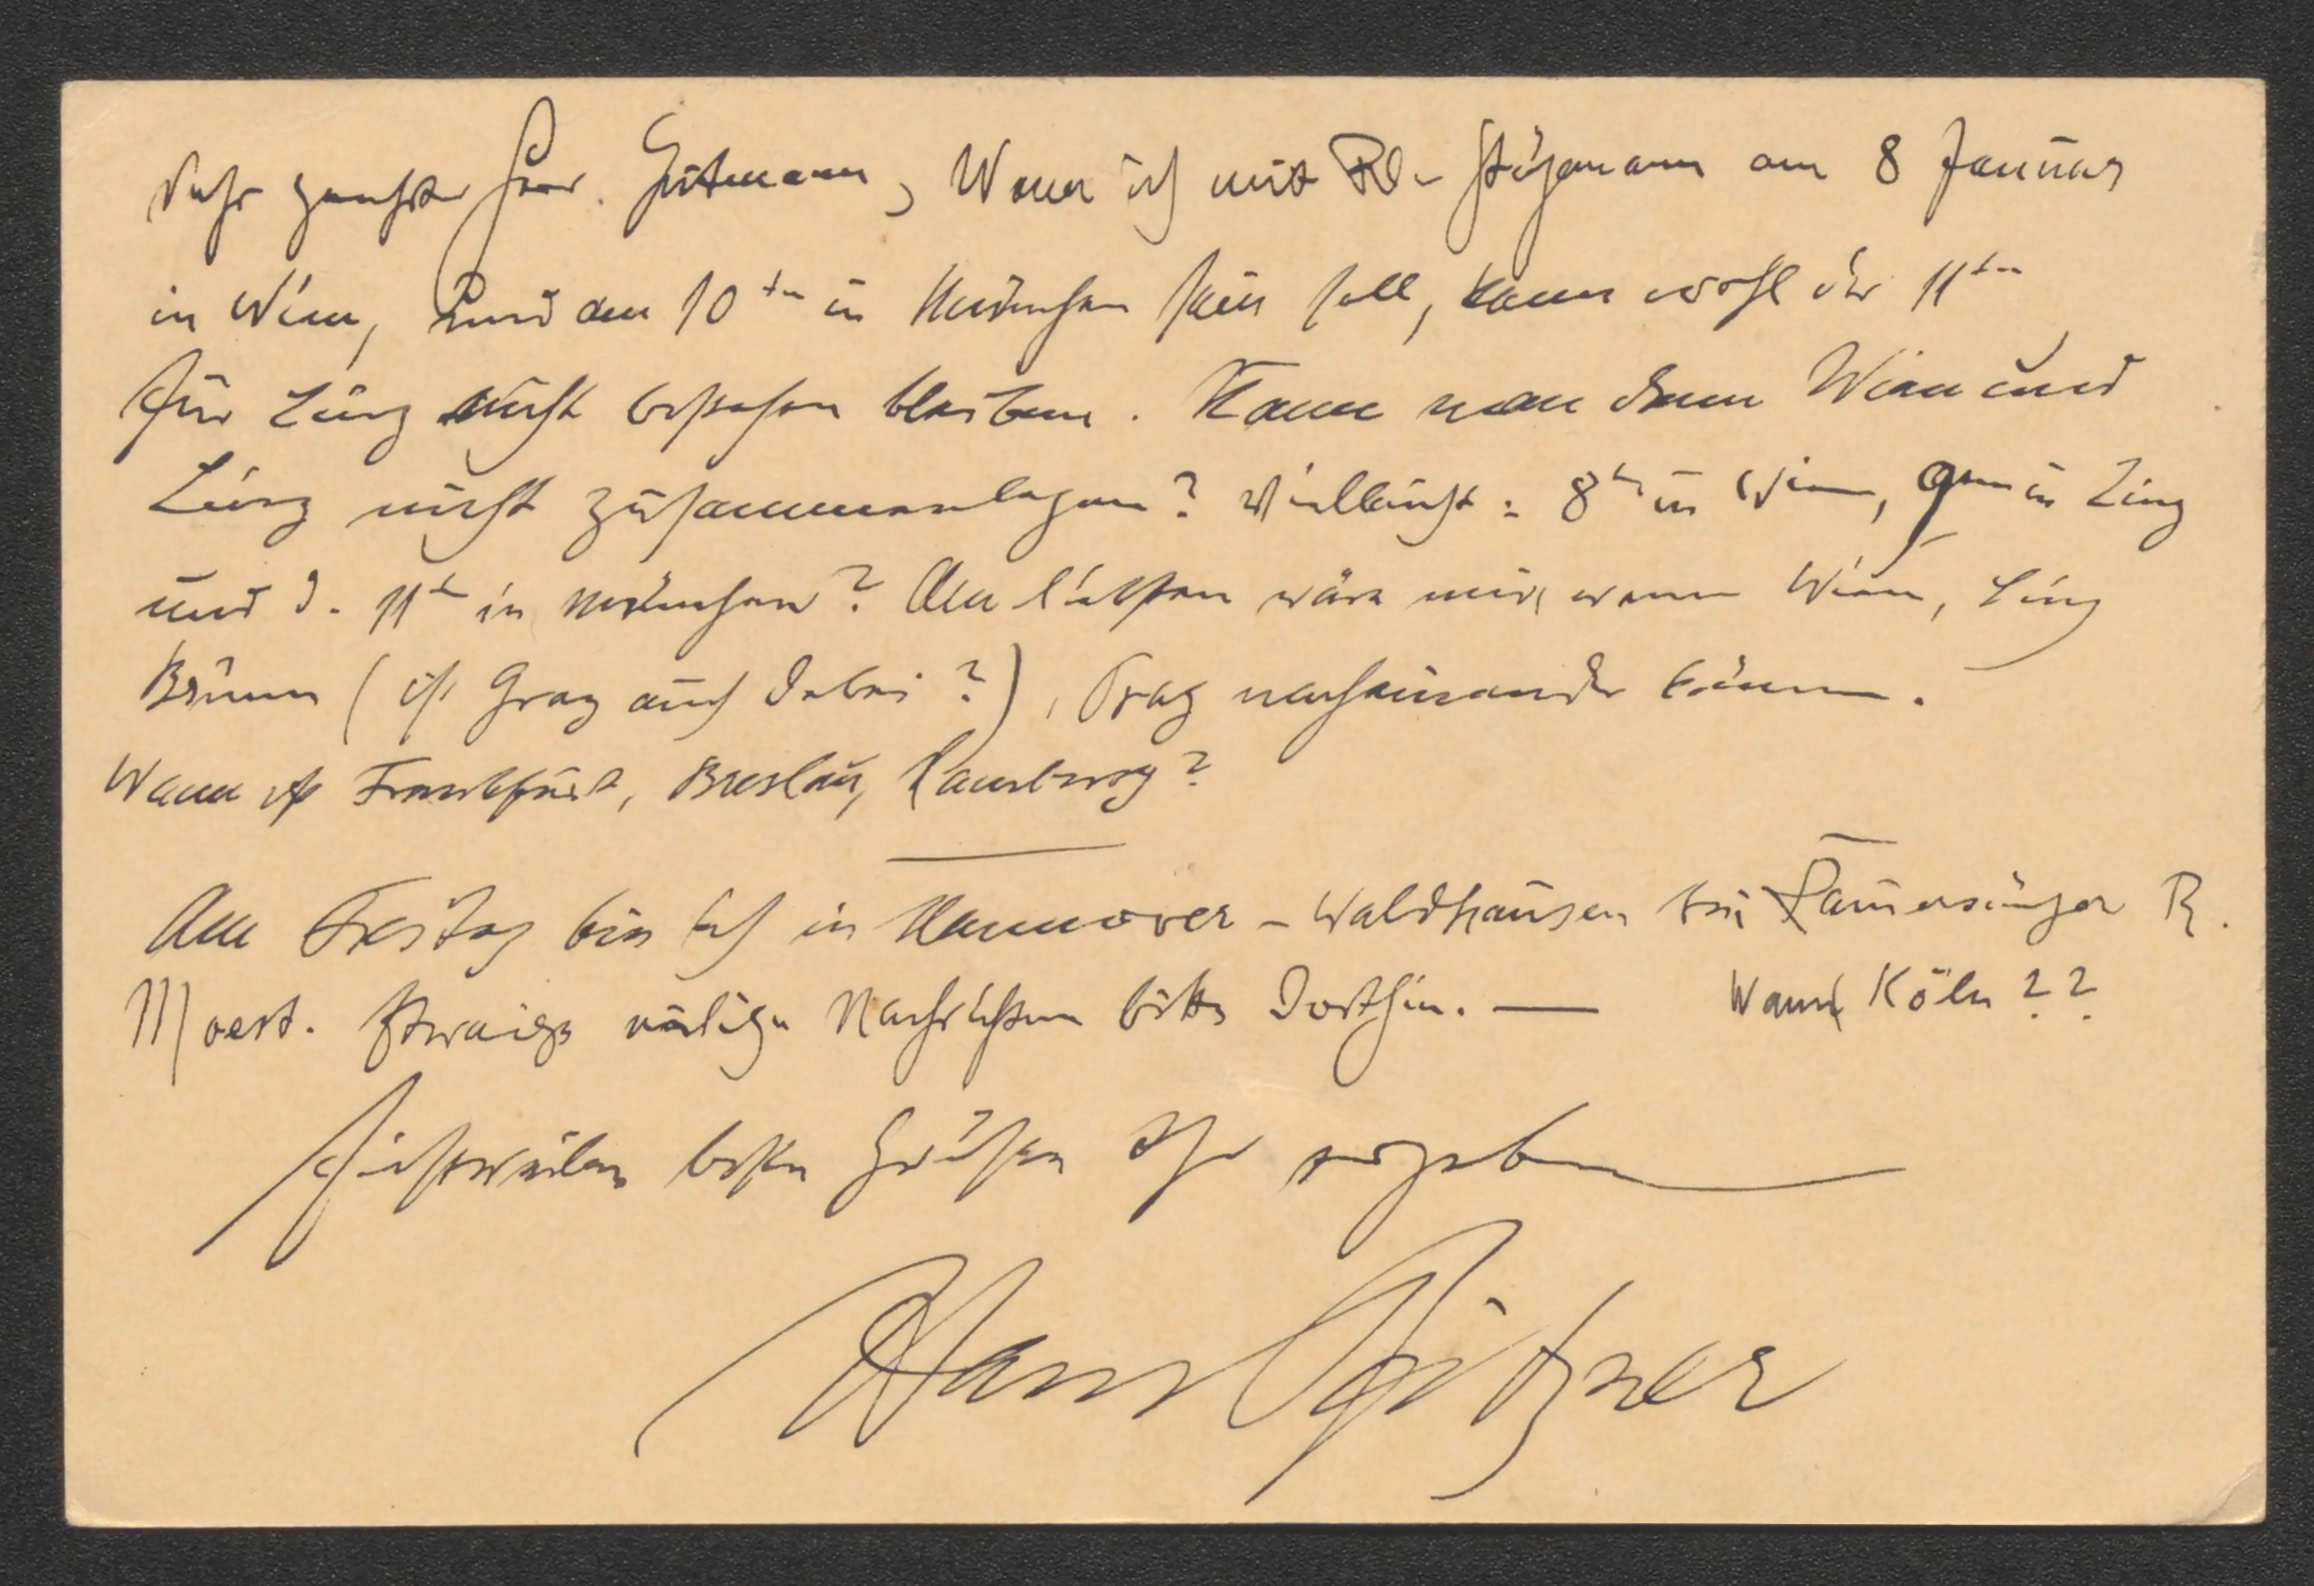 Sehr geehrter Herr Gutmann, Wenn ich mit  am 8 Januar
in Wien, und am 10ten in München sein soll, kann wohl der 11te
für Linz nicht bestehen bleiben. Kann man denn Wien und
Linz nicht zusammenlegen? Vielleicht: 8ten in Wien, 9ten in Linz
und d. 11te in München? Am liebsten wäre mir, wenn Wien, Linz
Brünn (ist Graz auch dabei?), Prag nacheinander kämen.
Wann ist Frankfurt, Breslau, Hamburg?
Am Freitag bin ich in Hannover-Waldhausen bei Kammersänger R.
Moest. Etwaige nötige Nachrichten bitte dorthin. — Wann Köln??
Einstweilen besten Grüßen Ihr ergebener
Hans Pfitzner